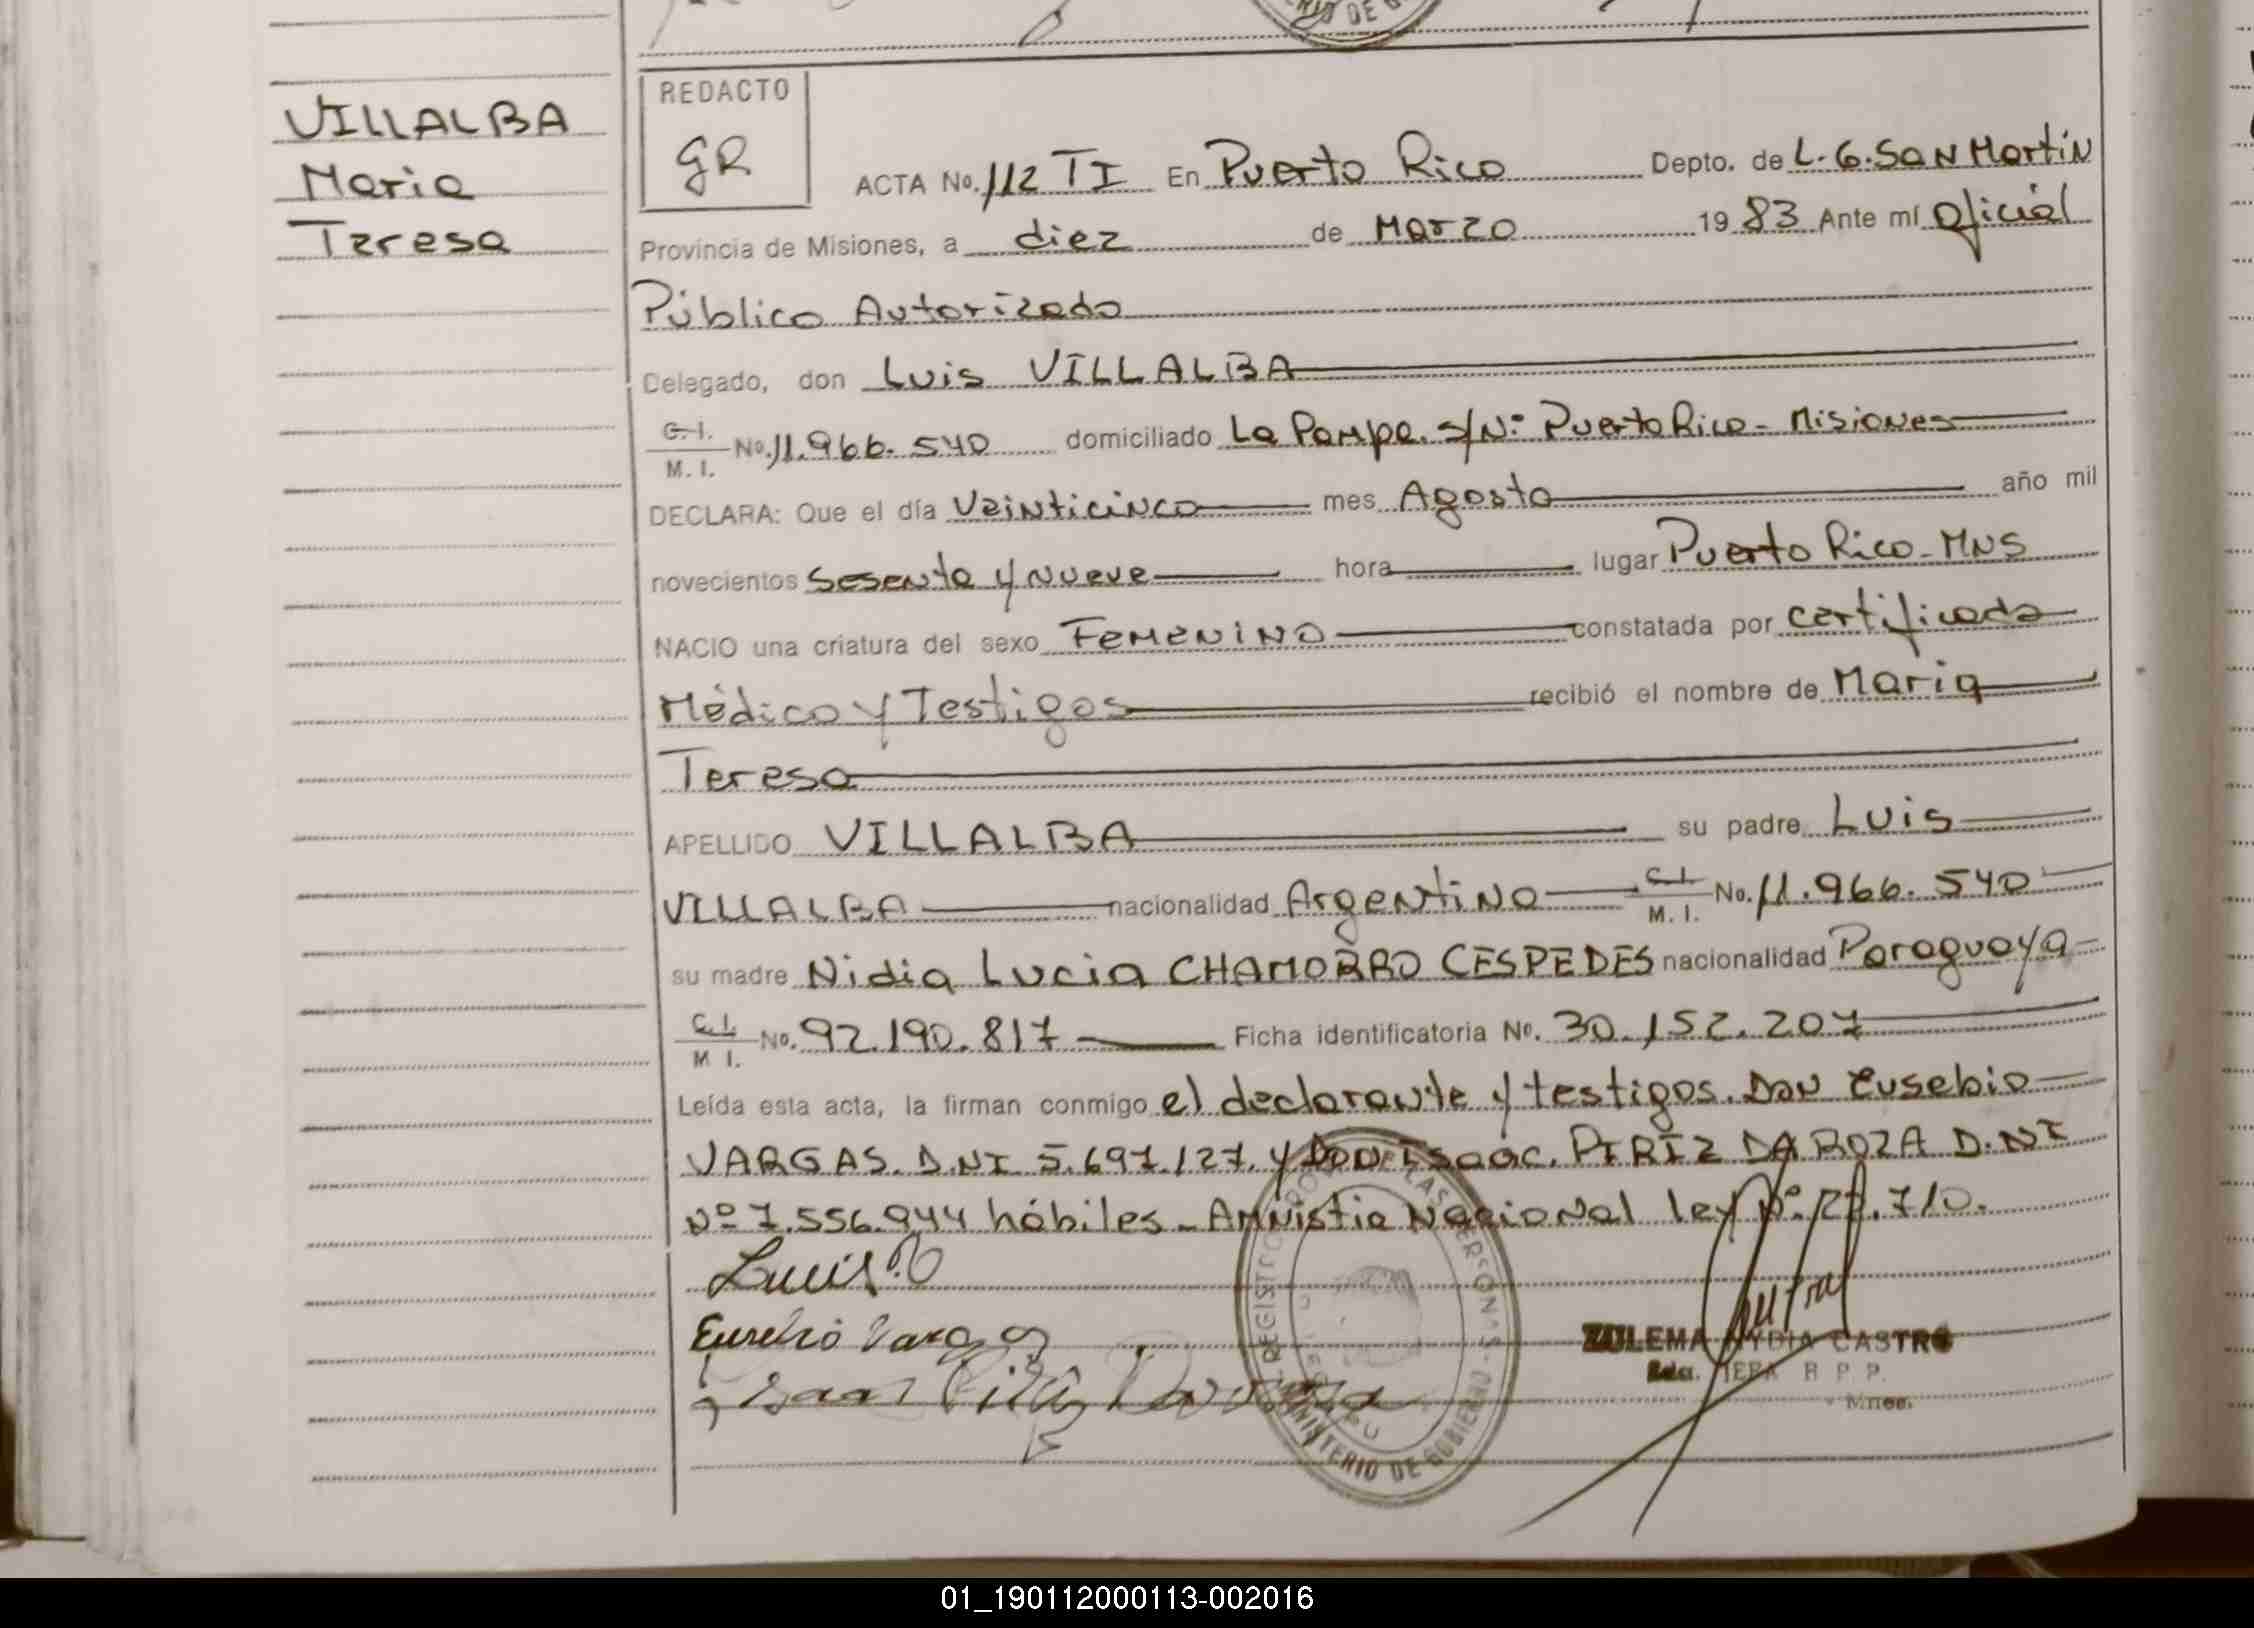 VILLALBA
Maria
Teresa
REDACTO
GR
ACTA No. 112 TI En Puerto Rico Depto. de L. G. SAN MARTIN
Provincia de Misiones, a diez de Marzo 1983 Ante mí Oficial
Público Autorizado
Delegado, don Luis VILLALBA
C. I.
M. I. No. 11.966.540 domiciliado La Pampa. s/Nº Puerto Rico - Misiones
DECLARA: Que el día Veinticinco mes Agosto año mil
novecientos Sesenta y nueve hora lugar Puerto Rico - MNS
NACIO una criatura del sexo Femenino constatada por certificado
Médico y Testigos recibió el nombre de Maria
Teresa
APELLIDO VILLALBA su padre Luis
VILLALBA nacionalidad Argentino C. I. M. I. No. 11.966.540
su madre Nidia Lucia CHAMORRO CESPEDES nacionalidad Paraguaya
C. I.
M I. No. 92.190.817 Ficha identificatoria No. 30.152.207
Leída esta acta, la firman conmigo el declarante y testigos. Don Eusebio
VARGAS. D.NI 5.697.127. y Don Isaác. PIRIZ DA ROZA D.NI
Nº 7.556.944 hábiles - Amnistia Nacional ley Nº 710.
Luis V
Eusebio Vargas
Isaac Piriz Da Roza
REGISTRO PROV. DE LAS PERSONAS
MINISTERIO DE GOBIERNO
ZULEMA NYDIA CASTRO
2da. JEFA R P P.
Mnes.
01_190112000113-002016